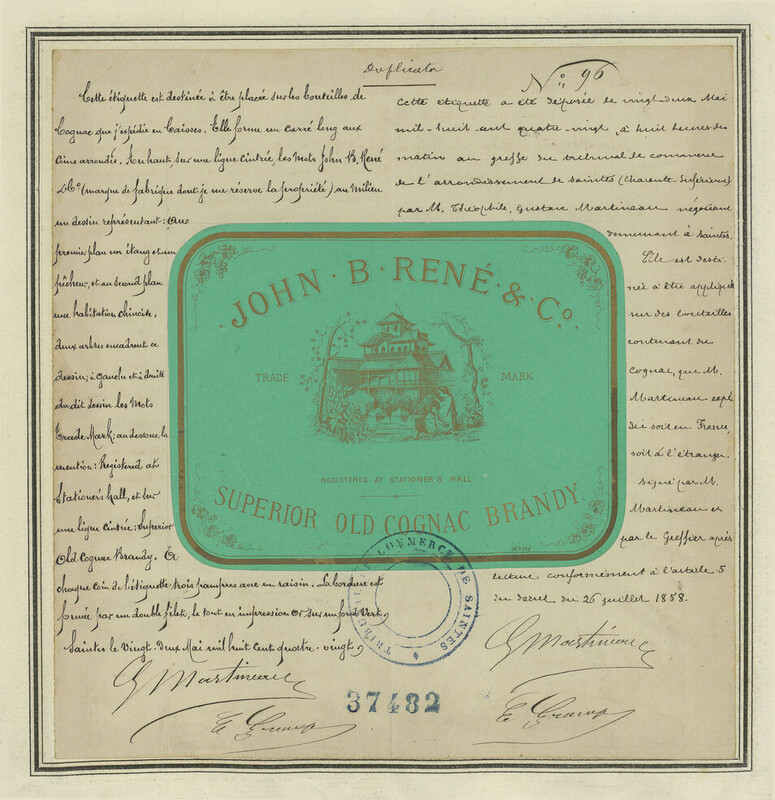 Duplicata
Nº 96
Cette étiquette est destinée à être placée sur les bouteilles de
Cognac que j'expédie en Caisses. Elle forme un carré long aux
Coins arrondis. En haut, sur une ligne cintrée, les Mots John B. René
& Cº (marque de fabrique dont je me réserve la propriété) au Milieu
un dessin représentant: au
premier plan un étang et un
pêcheur, et au second plan
une habitation chinoise,
deux arbres encadrent ce
dessin; à gauche et à droite
du dit dessin les Mots
Trade Mark; au dessous, la
mention: Registered at
Stationer's hall, et sur
une ligne cintrée: Superior
Old Cognac Brandy. A
chaque coin de l'étiquette trois pampres avec un raisin. La bordure est
formée par un double filet, le tout en impression or sur un fond vert.
Saintes le Vingt-deux Mai mil huit cent quatre-vingt
G Martineau
Cette étiquette a été déposée le vingt-deux Mai
mil-huit-cent quatre-vingt, à huit heures du
matin au greffe du tribunal de commerce
de l'arrondissement de Saintes (Charente-Inférieure)
par M. Théophile, Gustave Martineau négociant
demeurant à Saintes.
Elle est desti-
née à être appliquée
sur des bouteilles
contenant du
cognac, que M.
Martineau expé
die soit en France,
soit à l'étranger.
Signé par M.
Martineau et
par le Greffier après
lecture conformément à l'article 5
du décret du 26 juillet 1858.
G Martineau
JOHN · B · RENÉ · & · Cº.
TRADE MARK
REGISTERED AT STATIONER'S HALL
SUPERIOR OLD COGNAC BRANDY.
DÉPOSÉ
TRIBUNAL DE COMMERCE DE SAINTES
37482